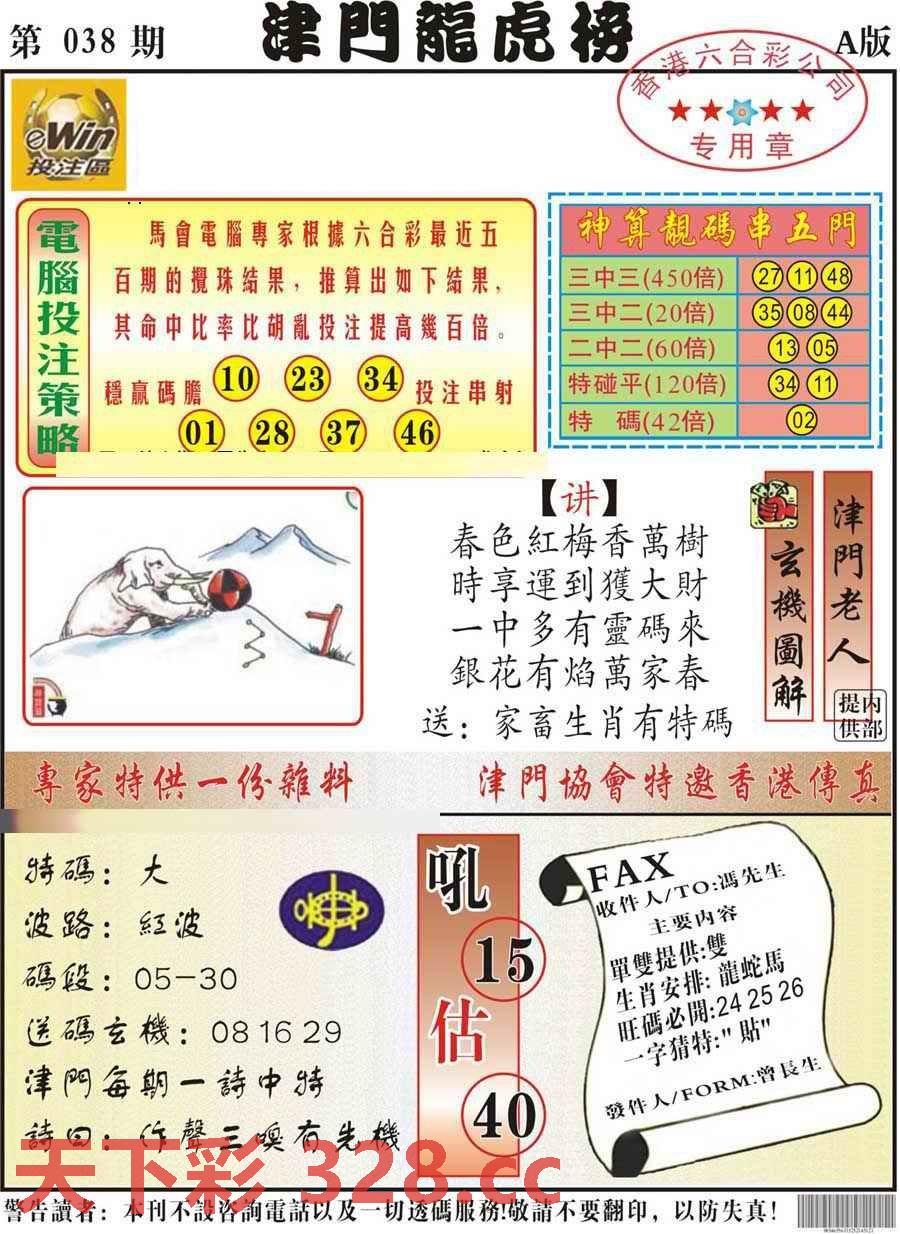 第 038 期
津門龍虎榜
A版
香港六合彩公司
专用章
eWin
投注區
電腦投注策略
馬會電腦專家根據六合彩最近五
百期的攪珠結果，推算出如下結果，
其命中比率比胡亂投注提高幾百倍。
穩贏碼膽 10 23 34 投注串射
01 28 37 46
神算靚碼串五門
三中三(450倍) 27 11 48
三中二(20倍) 35 08 44
二中二(60倍) 13 05
特碰平(120倍) 34 11
特 碼(42倍) 02
【讲】
春色紅梅香萬樹
時享運到獲大財
一中多有靈碼來
銀花有焰萬家春
送：家畜生肖有特碼
玄機圖解
津門老人
内部提供
專家特供一份雜料
津門協會特邀香港傳真
特碼：大
波路：紅波
碼段：05-30
送碼玄機：08 16 29
津門每期一詩中特
詩曰：作聲三嗅有先機
吼
15
估
40
FAX
收件人/TO:馮先生
主要内容
單雙提供:雙
生肖安排: 龍蛇馬
旺碼必開:24 25 26
一字猜特:" 貼"
發件人/FORM:曾長生
天下彩 328.cc
警告讀者：本刊不設咨詢電話以及一切透碼服務!敬請不要翻印，以防失真!